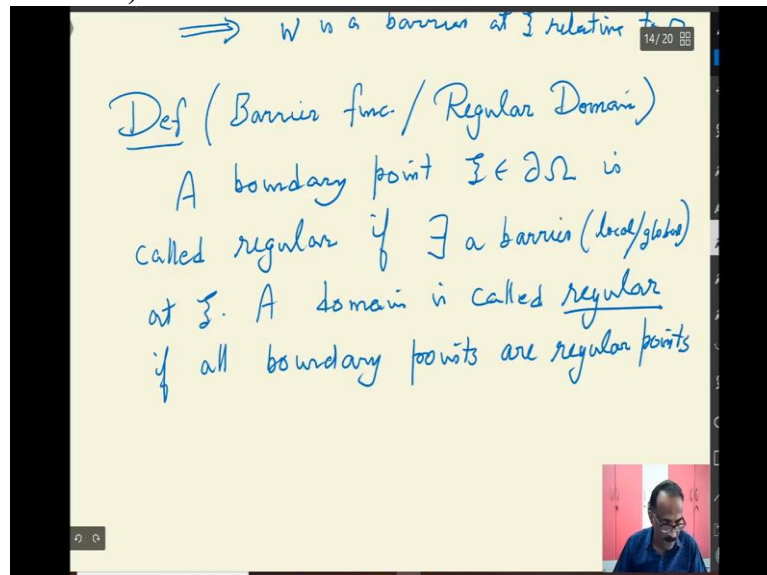 ⟹ W is a barrier at ξ relative to Ω
14/20
Def (Barrier func. / Regular Domain)
A boundary point ξ ∈ ∂Ω is
called regular if ∃ a barrier (local/global)
at ξ. A domain is called regular
if all boundary points are regular points